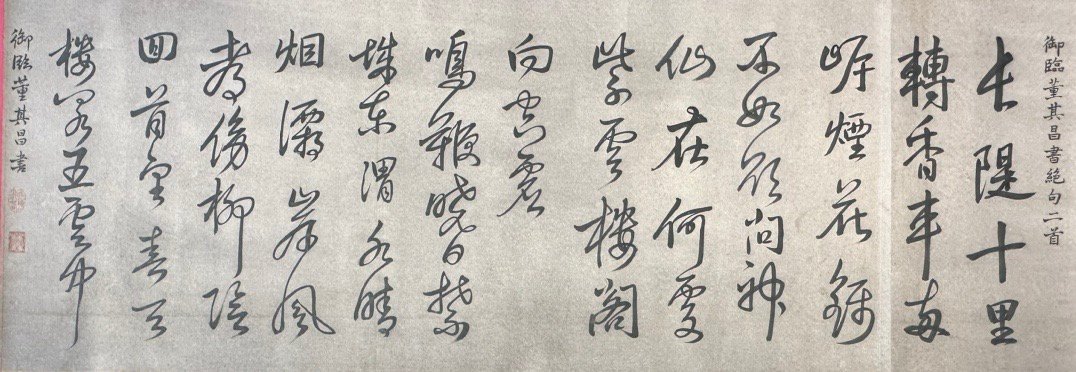 御臨董其昌書絕句二首
長隄十里
轉香車兩
岸煙花錦
不如欲問神
仙在何處
紫雲樓閣
向空虛
鳴鞭曉日禁
城東渭水晴
烟灞岸風
都傍柳陰
回首望春天
樓閣五雲中
御臨董其昌書